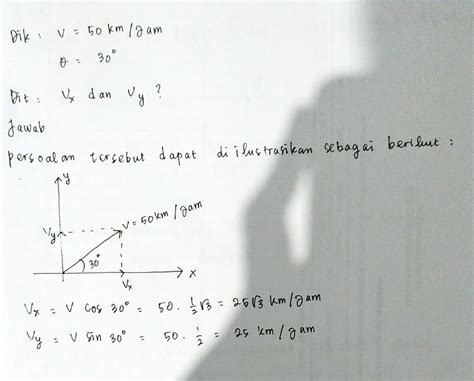 Dik : V = 50 km/jam
θ = 30°
Dit : Vx dan Vy ?
Jawab
persoalan tersebut dapat di ilustrasikan sebagai berikut :
y
Vy
V = 50 km/jam
30°
Vx
x
Vx = V cos 30° = 50 . ½√3 = 25√3 km/jam
Vy = V sin 30° = 50 . ½ = 25 km/jam